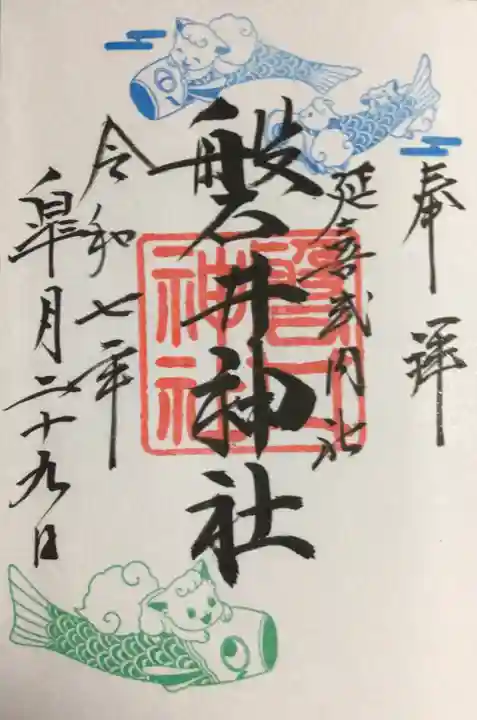 奉拝
延喜式内社
磐井神社
令和七年
皐月二十九日
磐井
神社